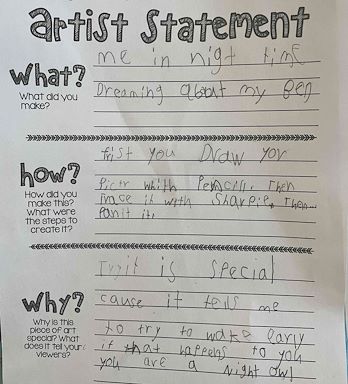 artist Statement
what?
What did you make?
me in night time
Dreaming about my Bed
how?
How did you make this? What were the steps to create it?
frist you Draw yor
Pictr whith Pencil. Then
Trace it with Sharpie. Then...
Panit it.
why?
Why is this piece of art special? What does it tell your viewers?
it is special
cause it tells me
to try to wake early
if that happens to you
you are a night owl